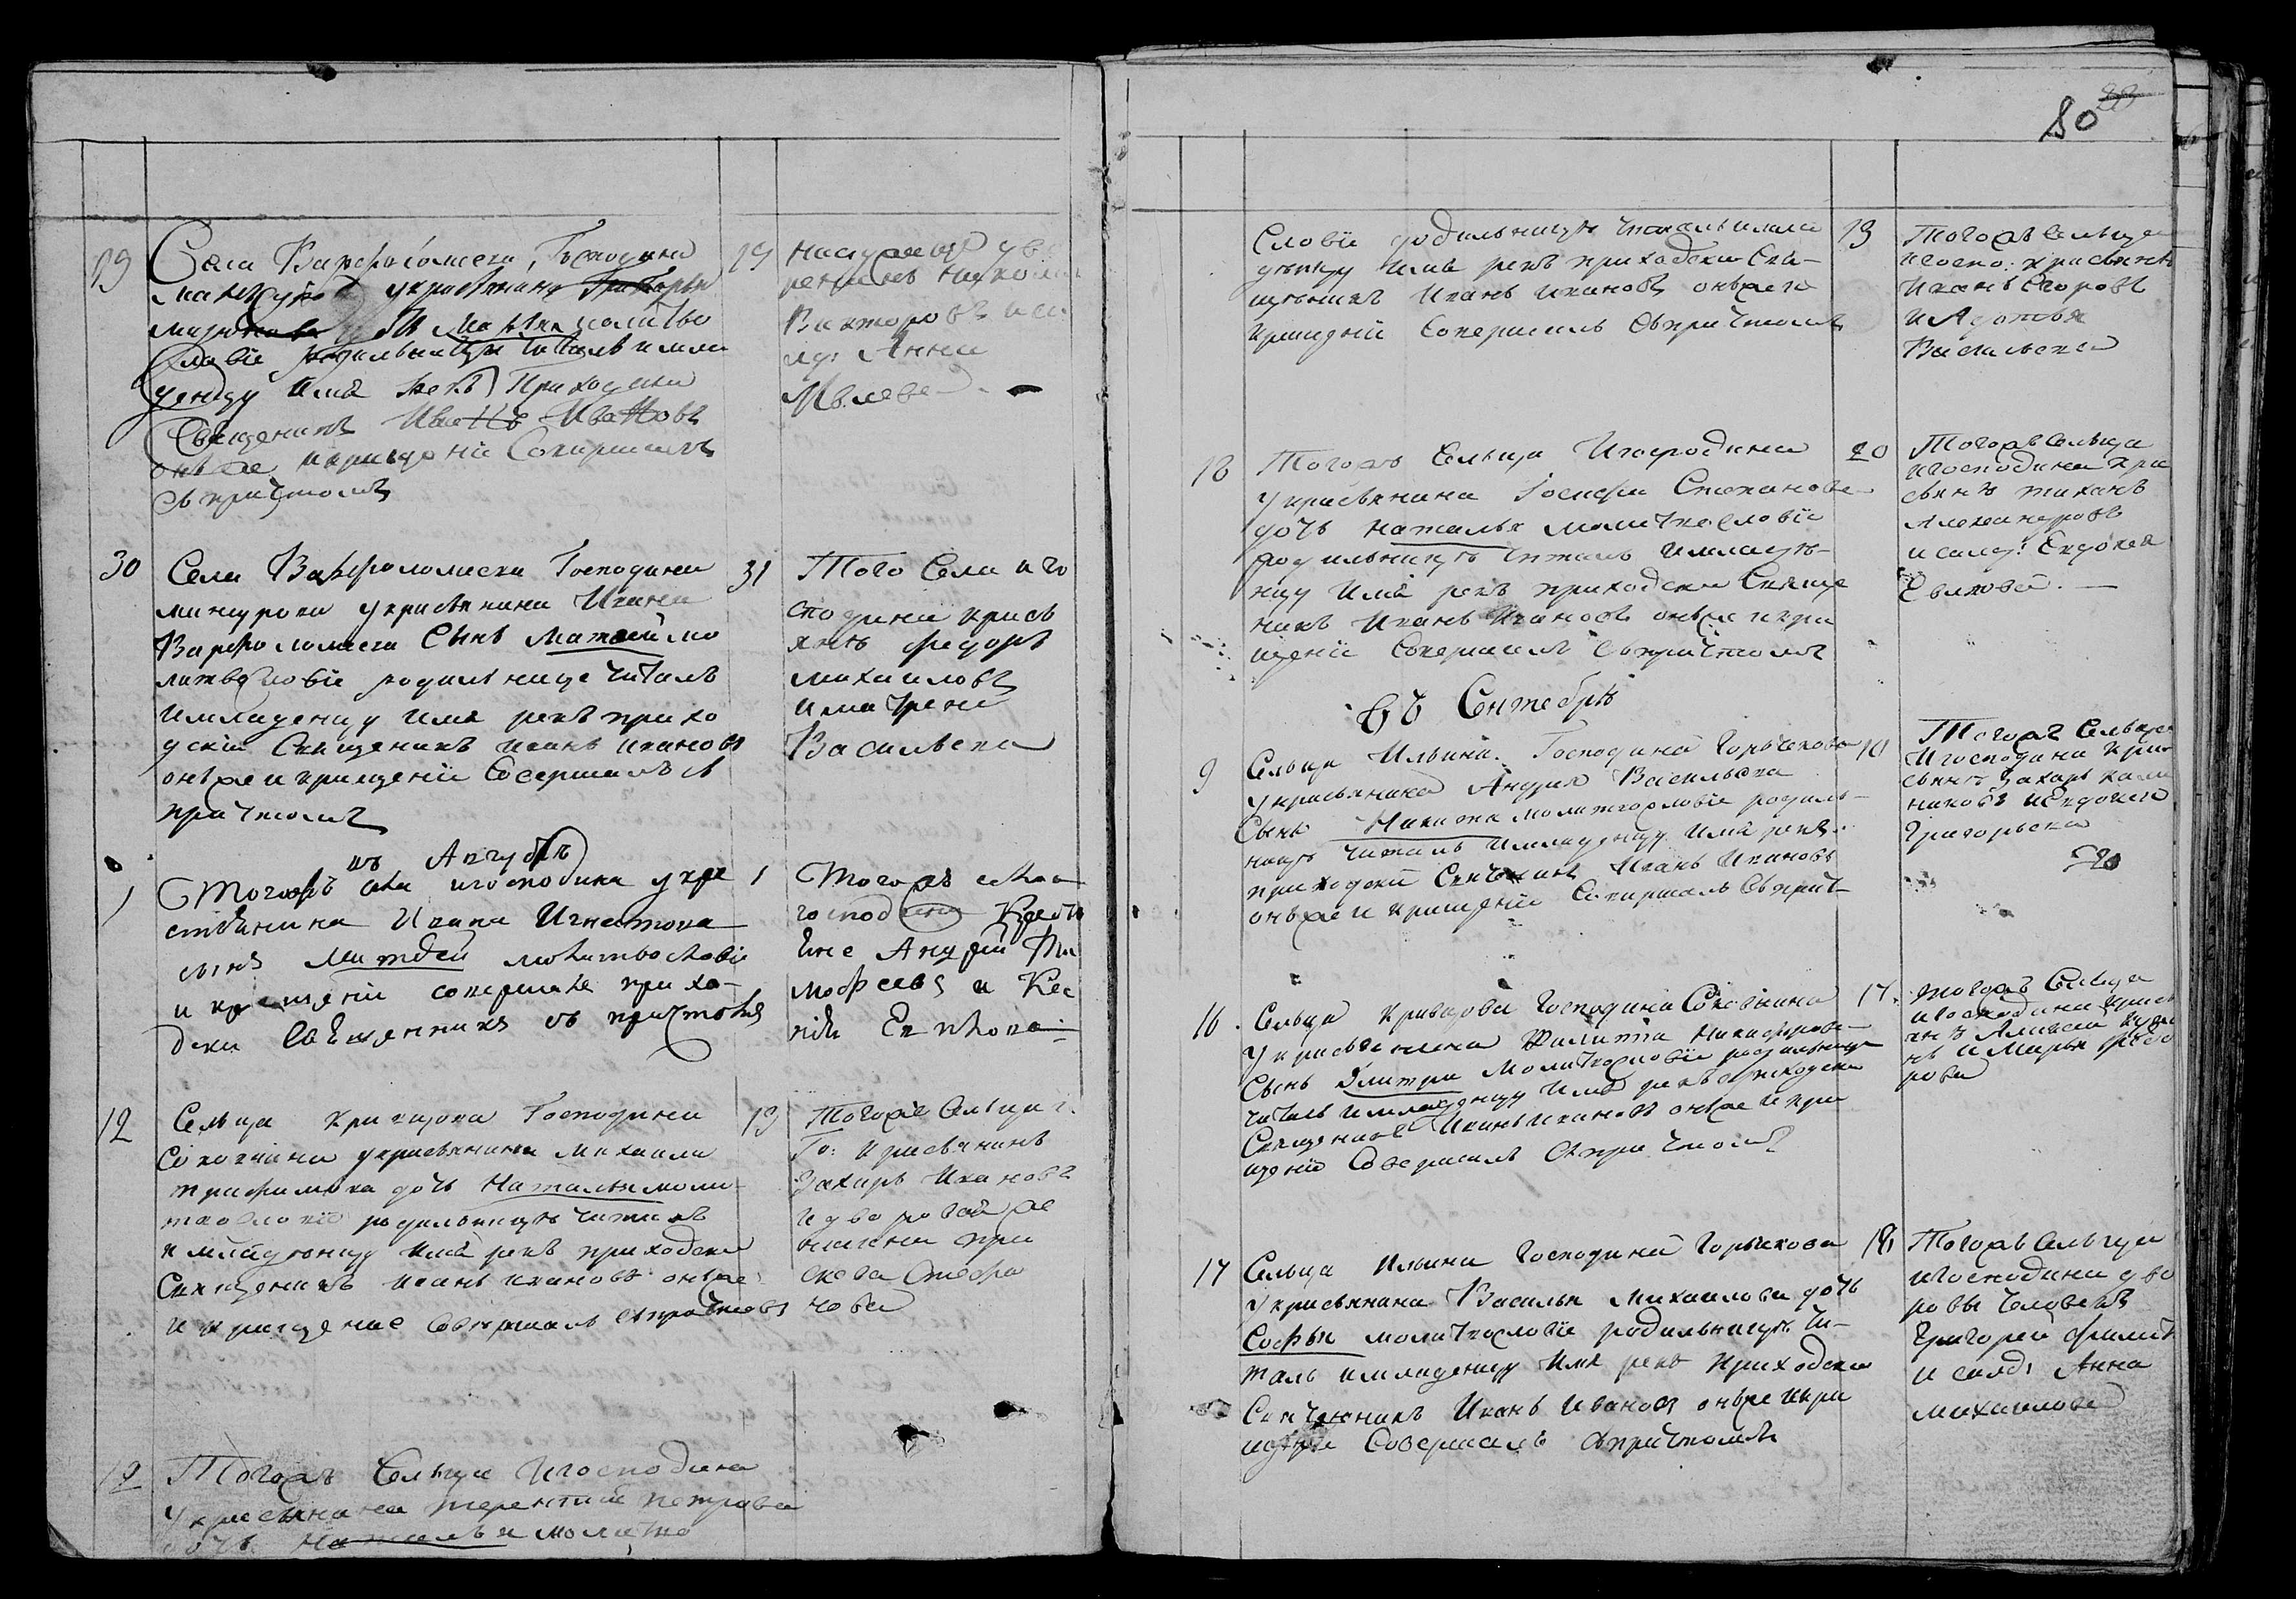 29
Села Варфоломеева, Господина
Мансурова у крестьянина Григорья
дочь Марья молитво
словіе родильницы читалъ и мла
денцу имя рекъ Приходски
Священникъ Иванъ Ивановъ
онъ же и крещеніе совершалъ
съ причтомъ
29
Викторовъ
Анна
30
Села Варфоломеева Господина
мансурова у крестьянина Ивана
Варфоломеева сынъ Матвей мо
литвословіе родильнице читалъ
и младенцу имя рекъ прихо
дскій Священникъ иванъ ивановъ
онъ же и крещеніе совершалъ с
причтомъ
31
Того Села и го
сподина кресь
янъ федоръ
михаиловъ
и матрена
Васильева
въ Августѣ
1
Тогожъ села и господина у кре
стьянина Ивана Игнатова
сынъ Матвей молитвословіе
и крещеніе совершалъ прихо-
дски священникъ съ причтомъ
1
Тогожъ села
господина Кресть
Андрей Ти
мофеевъ и Ксе
нія
12
Сельца кривцова Господина
Соковнина у кресьянина михаила
трифимова дочь Наталья моли
твословіе родильницѣ читалъ
и младѣнцу имя рекъ приходски
Священникъ иванъ ивановъ онъ же
и крещение совершалъ съ причтомъ
13
Тогожъ Сельца г.
Го: кресьянинъ
Захаръ Ивановъ
и дворовай же
нщина пра
сковья Стефа
нова
12
Тогожъ Сельца и господина
у кресьянина терентия петрова
дочь Наталья молитво
80
словіе родильницѣ читалъ и мла
дѣнцу имя рекъ приходски Свя-
щеникъ Иванъ ивановъ онъ же и
крещеніе Совершалъ Съ причтомъ
13
Тогожъ Сельца
и госпо: кресьянинъ
Иванъ Егоровъ
и Агафья
Васильева
18
Тогожъ Сельца и господина
у кресьянина Іосифа Степанова
дочь наталья молитвословіе
родильницѣ читалъ и младѣ-
нцу имя рекъ приходски Священ
никъ Иванъ Ивановъ онъ же и кре
щеніе Совершалъ Съ причтомъ
20
Тогожъ Сельца
и господина кре
сьянъ тиханъ
Александровъ
и салд: Евдокея
въ Сентебрѣ
9
Сельца Ильина Господина Горчакова
у кресьянина Андрея Васильева
Сынъ Никита молитвословіе родиль-
ницѣ читалъ и младенцу имя рекъ
приходски Священникъ Иванъ Ивановъ
онъ же и крещеніе Совершалъ Съ прич-
10
Тогожъ Сельца
и господина кре
сьянъ Захаръ кали
никовъ и Евдокея
Григорьева
16
Сельца Кривцова Господина Соковнина
у кресьянина Филиппа Никифорова
Сынъ Дмитри Молитвословіе родильнице
читалъ и младенцу имя рекъ приходски
Священникъ Иванъ ивановъ онъ же и кре
щеніе Совершалъ Съ причтомъ
17
тогожъ Сельца
и господина кресь
янъ Алексей
и Марья Федо
рова
17
Сельца Ильина Господина Горчакова
у кресьянина Василья Михаилова дочь
Софья молитвословіе родильницѣ чи-
талъ и младенцу имя рекъ Приходски
Священникъ Иванъ Ивановъ онъ же и кре
щеніе Совершалъ Съ причтомъ
18
Тогожъ Сельца
и Господина дво
ровы Человекъ
Григорей Филип
и салд: Анна
михаилова